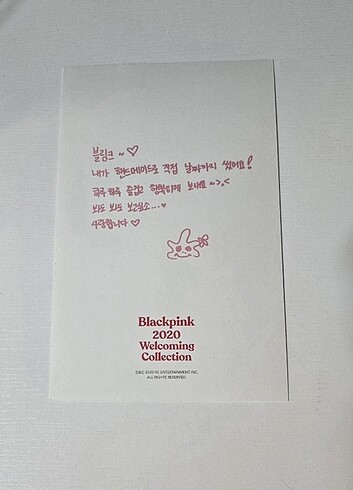 블링크 ~ ♡
내가 핸드메이드로 직접 날짜까지 썼어요!
하루하루 즐겁고 행복하게 보내요 ~>,<
봐도 봐도 보고싶소...♥
사랑합니다 ♡
Blackpink
2020
Welcoming
Collection
2020 YG ENTERTAINMENT INC.
ALL RIGHTS RESERVED.